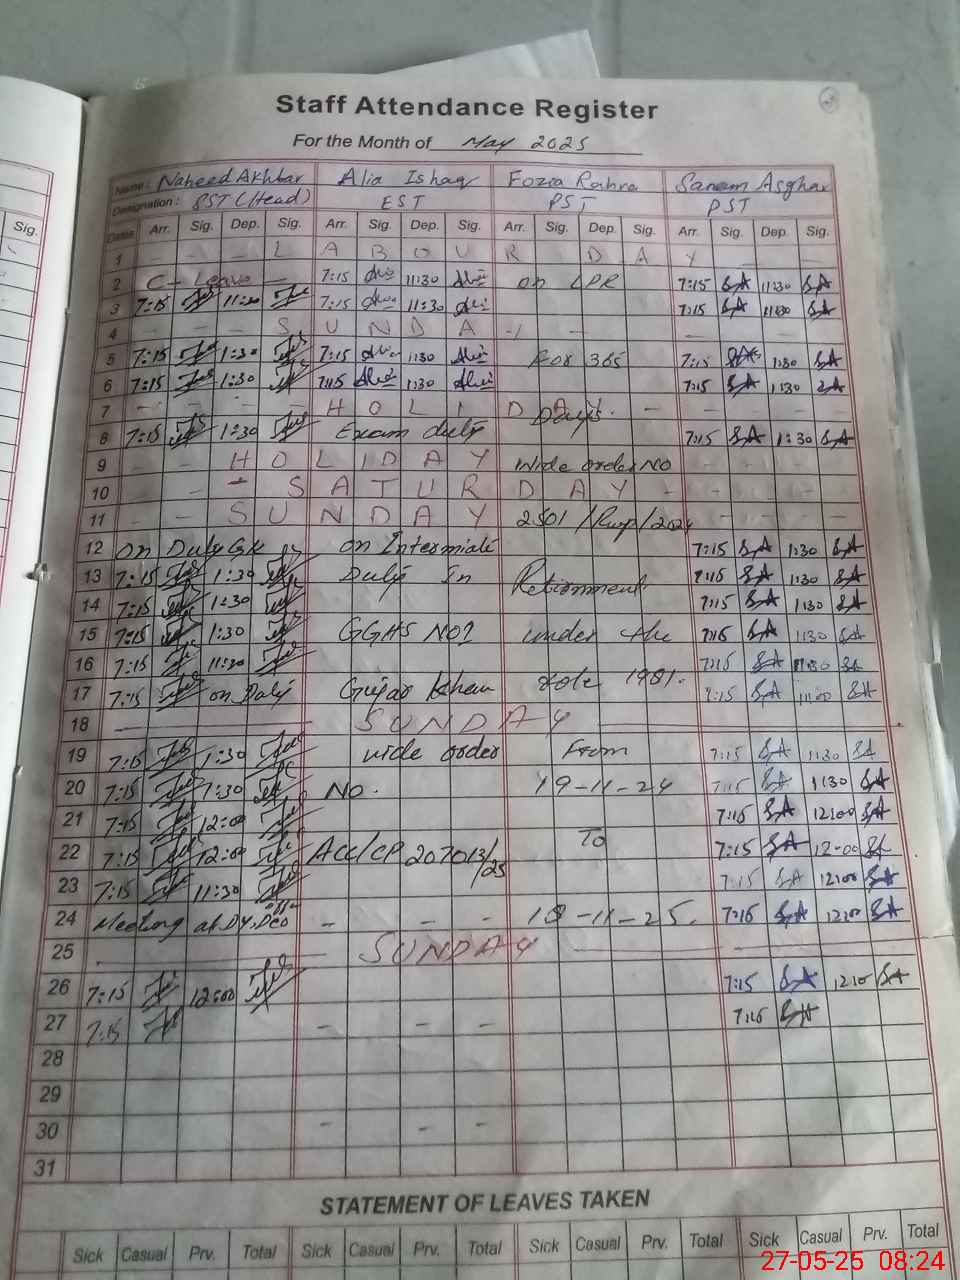 Staff Attendance Register
For the Month of May 2025
Name : Naheed Akhtar Alia Ishaq Fozia Rahra Sanam Asghar
Designation : PST (Head) EST PST PST
Dates Arr. Sig. Dep. Sig. Arr. Sig. Dep. Sig. Arr. Sig. Dep. Sig. Arr. Sig. Dep. Sig.
1 - - - L A B O U R D A Y - - -
2 C-Leave - 7:15 Alia 11:30 Alia on LPR 7:15 SA 11:30 SA
3 7:15 11:30 7:15 Alia 11:30 Alia 7:15 SA 11:30 SA
4 - - - S U N D A Y - -
5 7:15 1:30 7:15 Alia 1:30 Alia For 365 7:15 SA 1:30 SA
6 7:15 1:30 7:15 Alia 1:30 Alia 7:15 SA 1:30 SA
7 - - - - H O L I D A Y - - - - Days.
8 7:15 1:30 Exam duty 7:15 SA 1:30 SA
9 - - H O L I D A Y Wide order No - - - -
10 - - - S A T U R D A Y - - - - -
11 - - S U N D A Y 2501 /Rwp/2024 - - -
12 On Duty on Intermiate 7:15 SA 1:30 SA
13 7:15 1:30 Duty In Retirement 7:15 SA 1:30 SA
14 7:15 1:30 7:15 SA 1:30 SA
15 7:15 1:30 GGHS No2 under the 7:15 SA 1:30 SA
16 7:15 11:30 7:15 SA 11:30 SA
17 7:15 on Duty Gujar Khan 1981. 7:15 SA 11:00 SA
18 SUNDAY
19 7:15 1:30 wide order From 7:15 SA 1:30 SA
20 7:15 1:30 No. 19-11-24 7:15 SA 1:30 SA
21 7:15 12:00 7:15 SA 12:00 SA
22 7:15 12:00 Acc/CP 207013/25 To 7:15 SA 12:00 SA
23 7:15 11:30 7:15 SA 12:00 SA
24 Meeting at Dy.Deo office - - - - 18-11-25. 7:15 SA 12:00 SA
25 SUNDAY
26 7:15 12:00 7:15 SA 12:10 SA
27 7:15 - - - 7:15 SA
28
29
30 - - -
31
STATEMENT OF LEAVES TAKEN
Sick Casual Prv. Total Sick Casual Prv. Total Sick Casual Prv. Total Sick Casual Prv. Total
27-05-25 08:24
Sig.